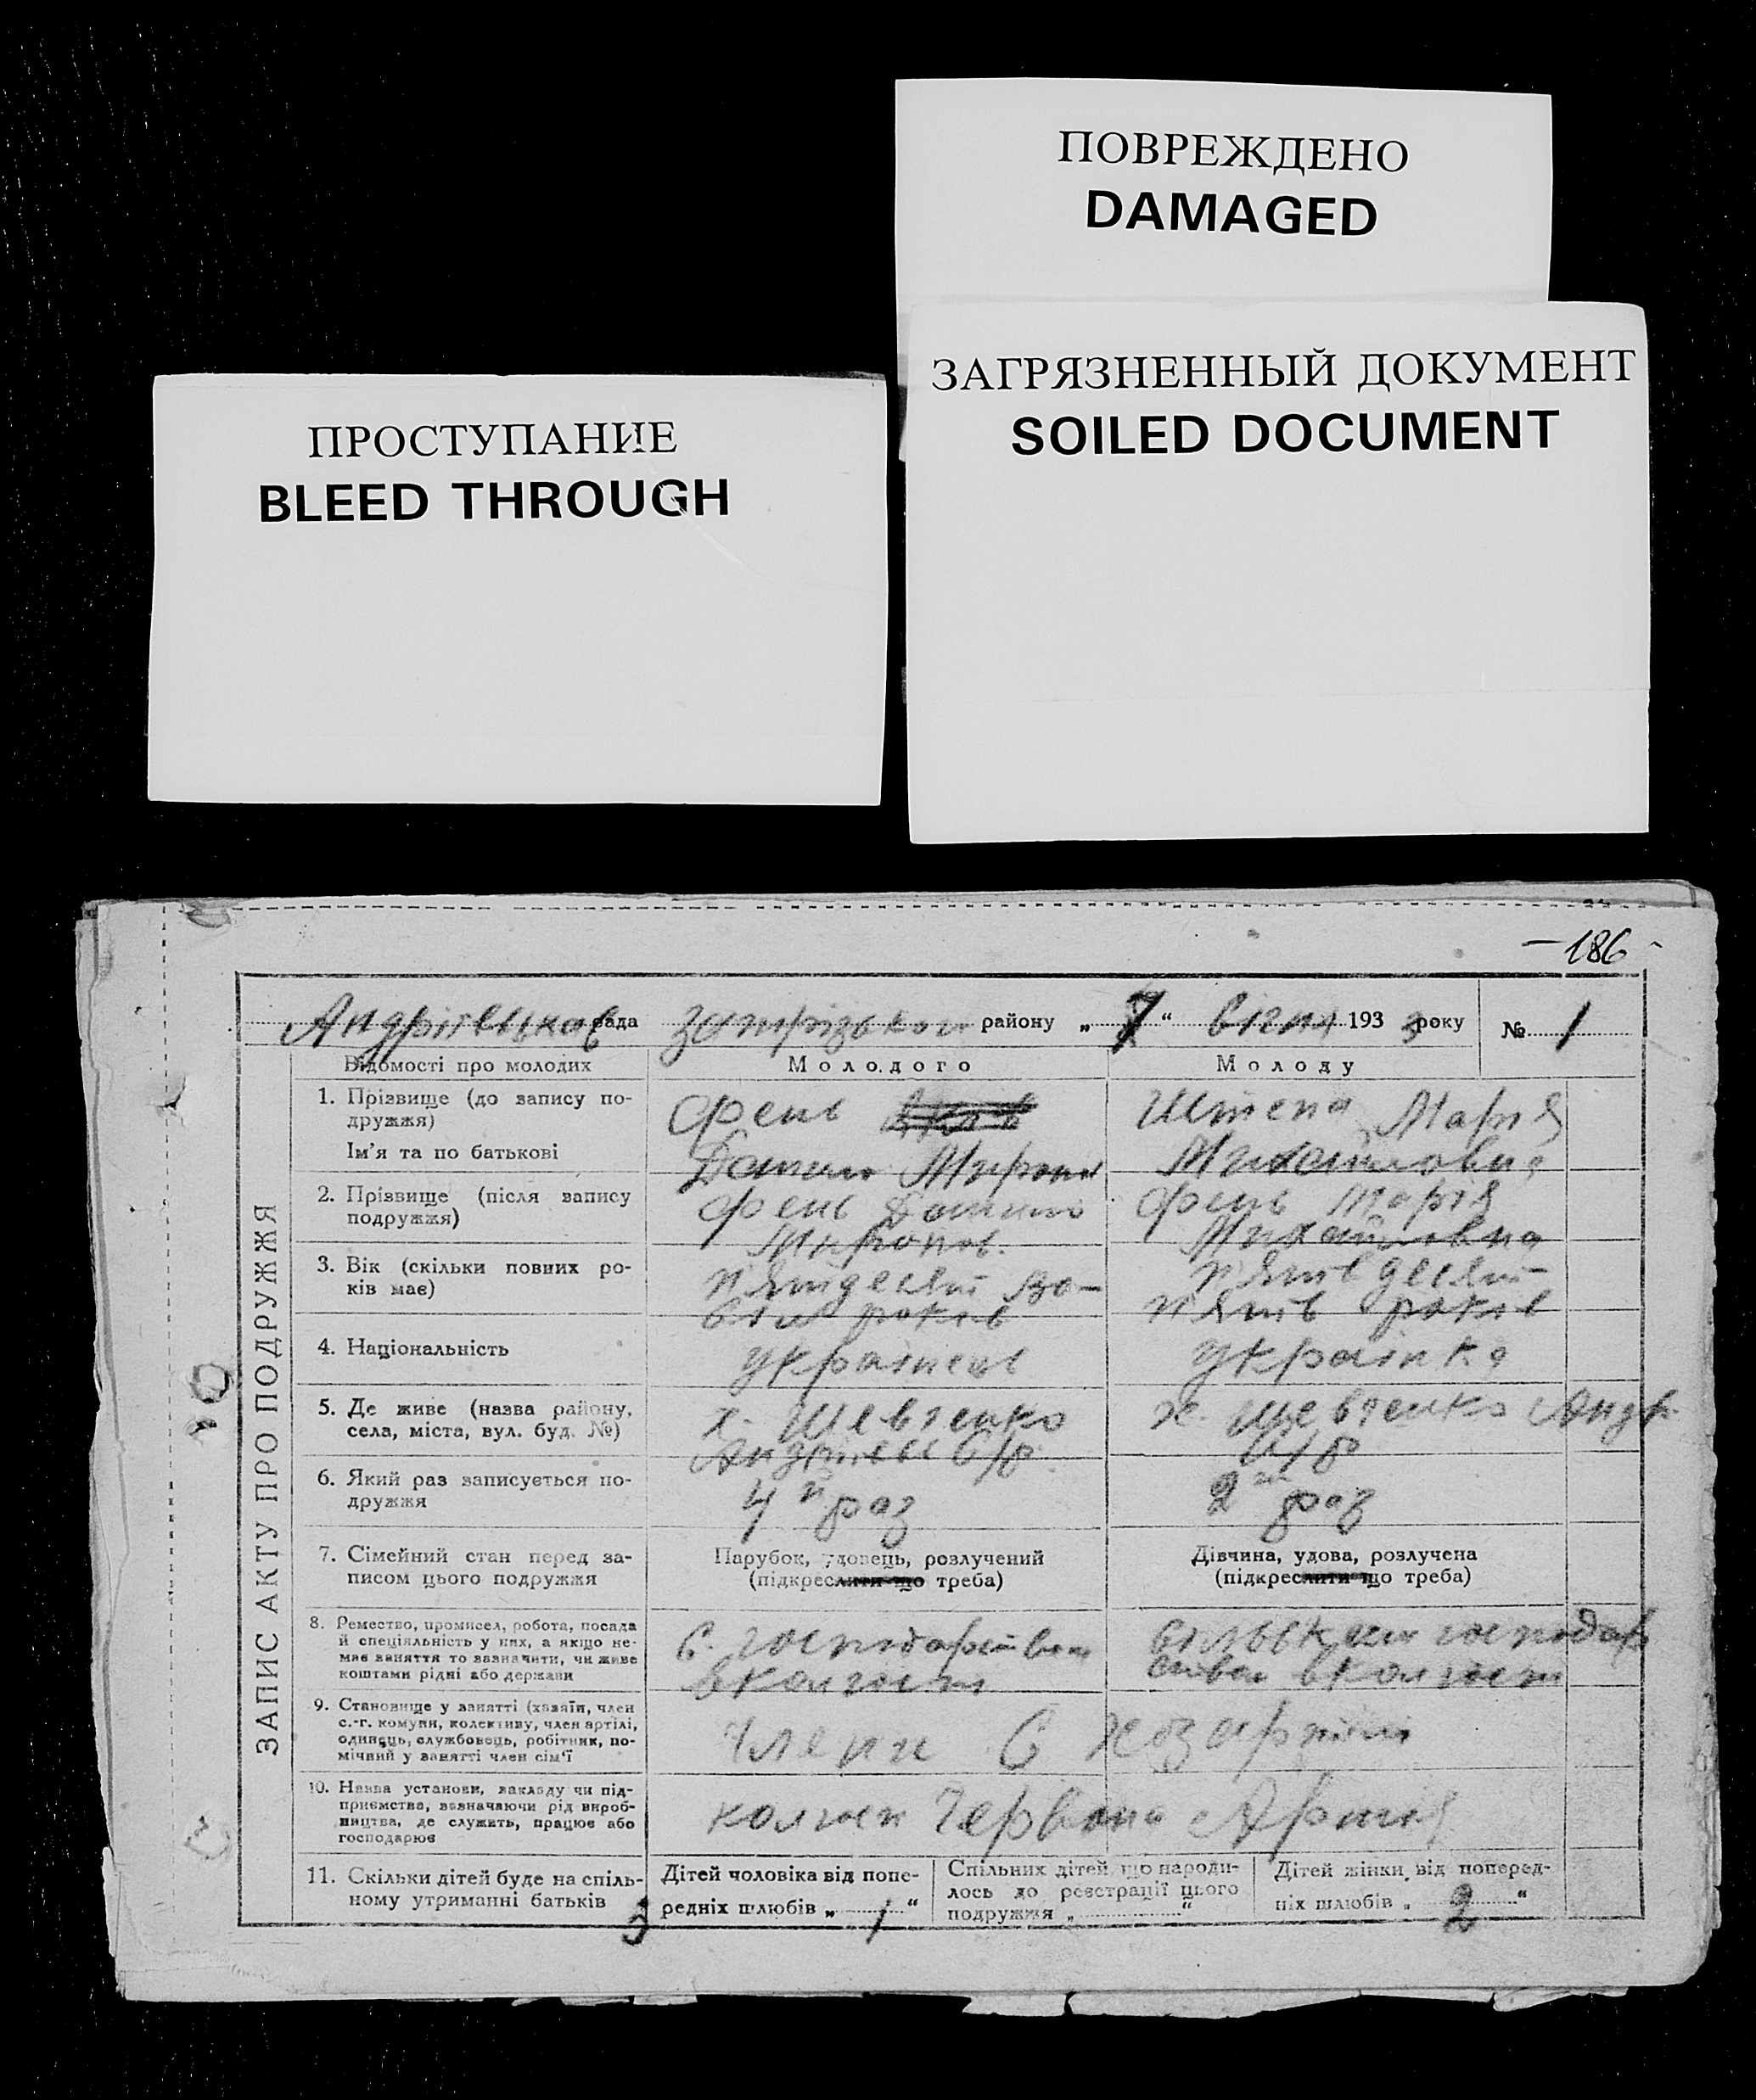 ПОВРЕЖДЕНО
DAMAGED
ЗАГРЯЗНЕННЫЙ ДОКУМЕНТ
SOILED DOCUMENT
ПРОСТУПАНИЕ
BLEED THROUGH
— 186 -
рада району „ 7 “ січня 193 3 року № 1
ЗАПИС АКТУ ПРО ПОДРУЖЖЯ
Відомості про молодих Молодого Молоду
1. Прізвище (до запису по-
дружжя)
Ім'я та по батькові
Фень
Данило Мирон
Штепа Марія
Михайловна
2. Прізвище (після запису
подружжя)
Фень Данило
Миронов.
Фень Марія
Михайловна
3. Вік (скільки повних ро-
ків має)
п'ятдесят во-
сім років
п'ятьдесят
п'ять років
4. Національність
українець
українка
5. Де живе (назва району,
села, міста, вул. буд. №)
х. Шевченко
с/р.
х. Шевченко Андр.
с/р
6. Який раз записується по-
дружжя
4й раз
2й раз
7. Сімейний стан перед за-
писом цього подружжя
Парубок, удовець, розлучений
(підкреслити що треба)
Дівчина, удова, розлучена
(підкреслити що треба)
8. Ремество, промисел, робота, посада
й спеціяльність у них, а якщо не-
має заняття то зазначити, чи живе
коштами рідні або держави
9. Становище у занятті (хазяїн, член
с.-г. комуни, колективу, член артілі,
одинець, службовець, робітник, по-
мічний у занятті член сім'ї
члени С
10. Назва установи, закладу чи під-
приємства, зазначаючи рід вироб-
ництва, де служить, працює або
господарює
колгосп Червона Армія
11. Скільки дітей буде на спіль-
ному утриманні батьків 3
Дітей чоловіка від попе-
редніх шлюбів „ 1 “
Спільних дітей, що народи-
лось до реєстрації цього
подружжя „ “
Дітей жінки від поперед-
ніх шлюбів „ 2 “